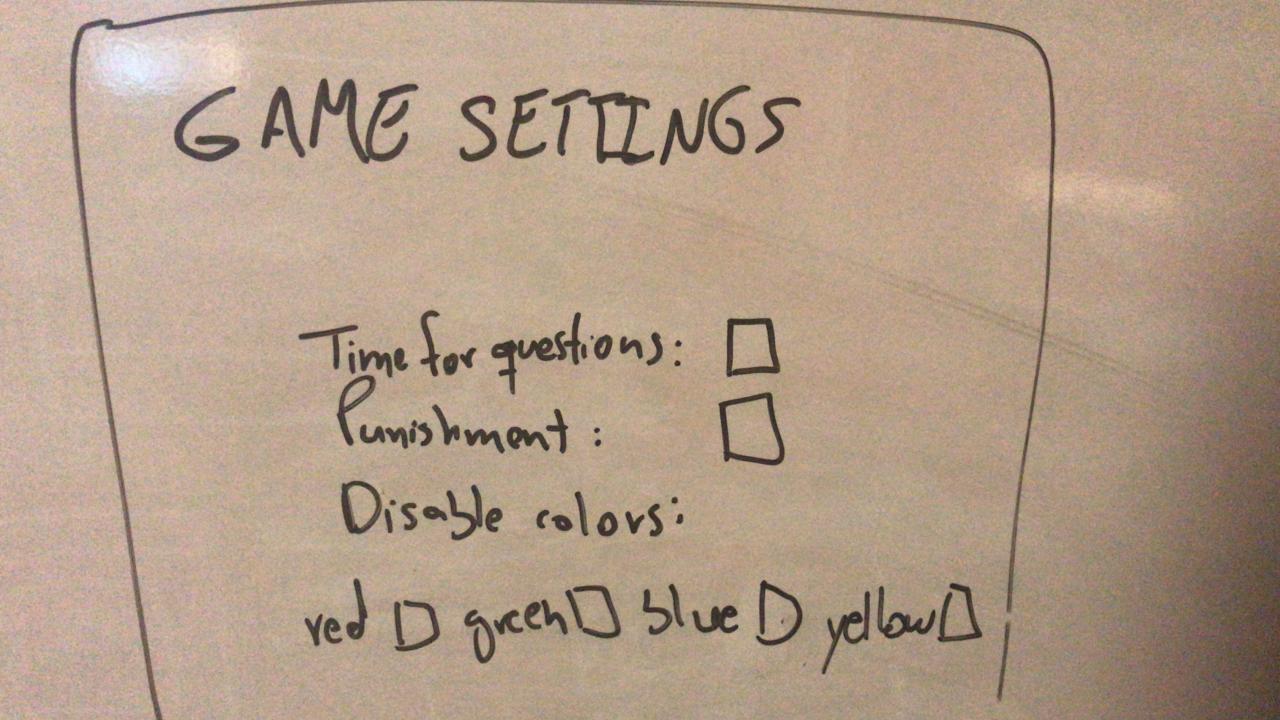 GAME SETTINGS
Time for questions:
Punishment:
Disable colors:
red green blue yellow